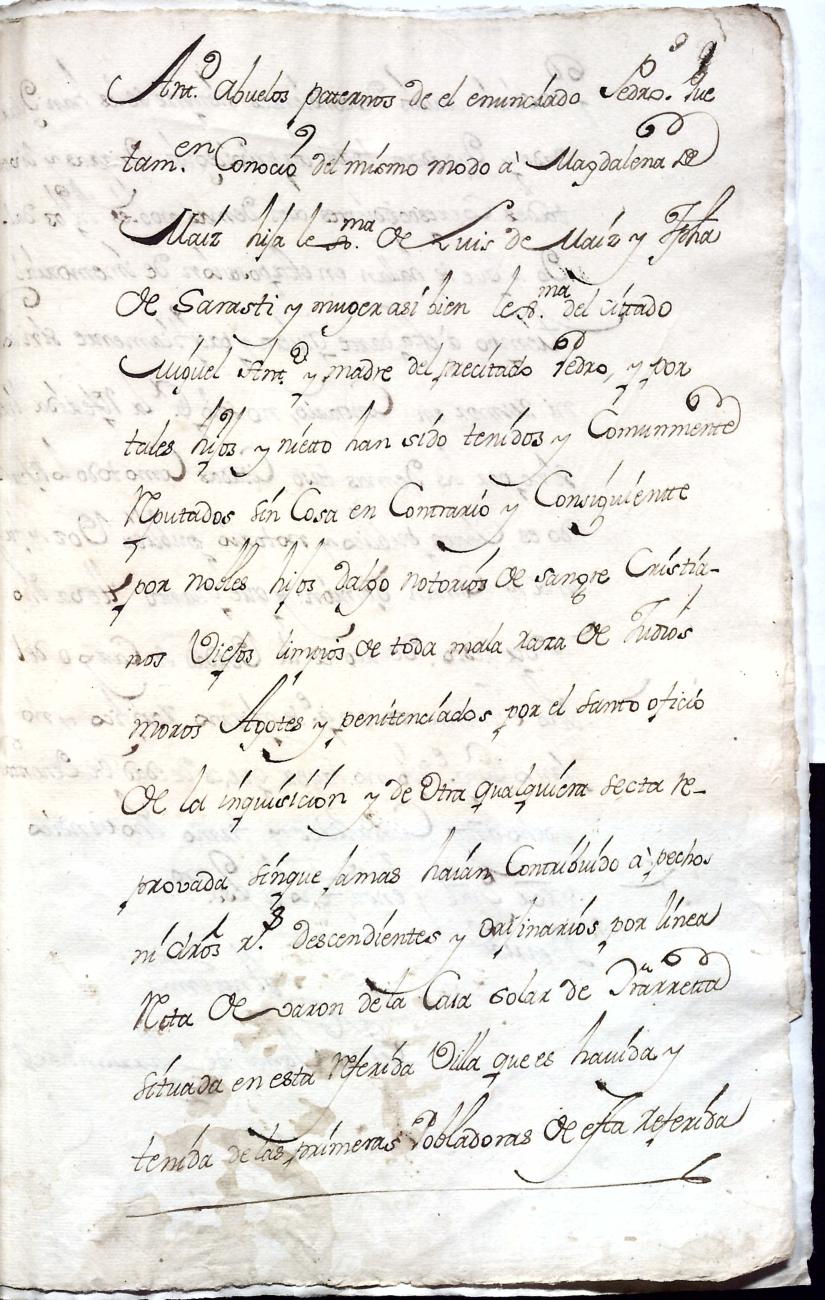 Ant.º Abuelos paternos de el enunciado Pedro. Que
tam.en Conocio del mismo modo à Magdalena de
Maiz hija lex.ma de Luis de Maiz y Jpha
de Sarasti y muger asi bien lex.ma del citado
Miguel Ant.º y madre del precitado Pedro, y por
tales hijos y nietto han sido tenidos y Comunmente
Reputados sin Cosa en Contrario y Consiguientte
por nobles hijos dalgo notorios de sangre Cristia-
nos Viejos limpios de toda mala raza de Judios
moros Agotes y penitenciados por el santo oficio
de la inquisicion y de otra qualquiera secta re-
provada sinque jamas haian Contribuido à pechos
ni dros r.s descendientes y orijinarios por linea
Recta de varon de la Casa solar de
situada en esta referida Villa que es havida y
tenida de las primeras Pobladoras de esta referida